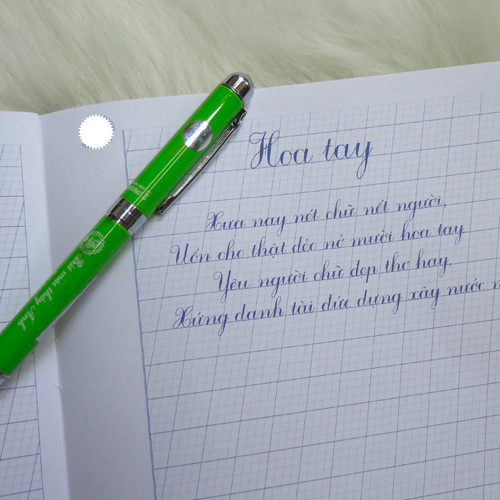 Hoa tay
Xưa nay nét chữ nết người,
Uốn cho thật dẻo nở mười hoa tay
Yêu người chữ đẹp thơ hay.
Xứng danh tài đức dựng xây nước
Bút mài thầy Ánh